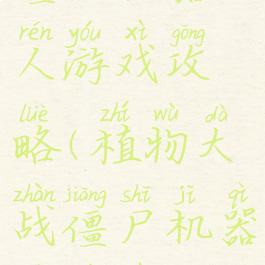 rén yóu xì gōng
人游戏攻
lüè zhí wù dà
略(植物大
zhàn jiāng shī jī qì
战僵尸机器